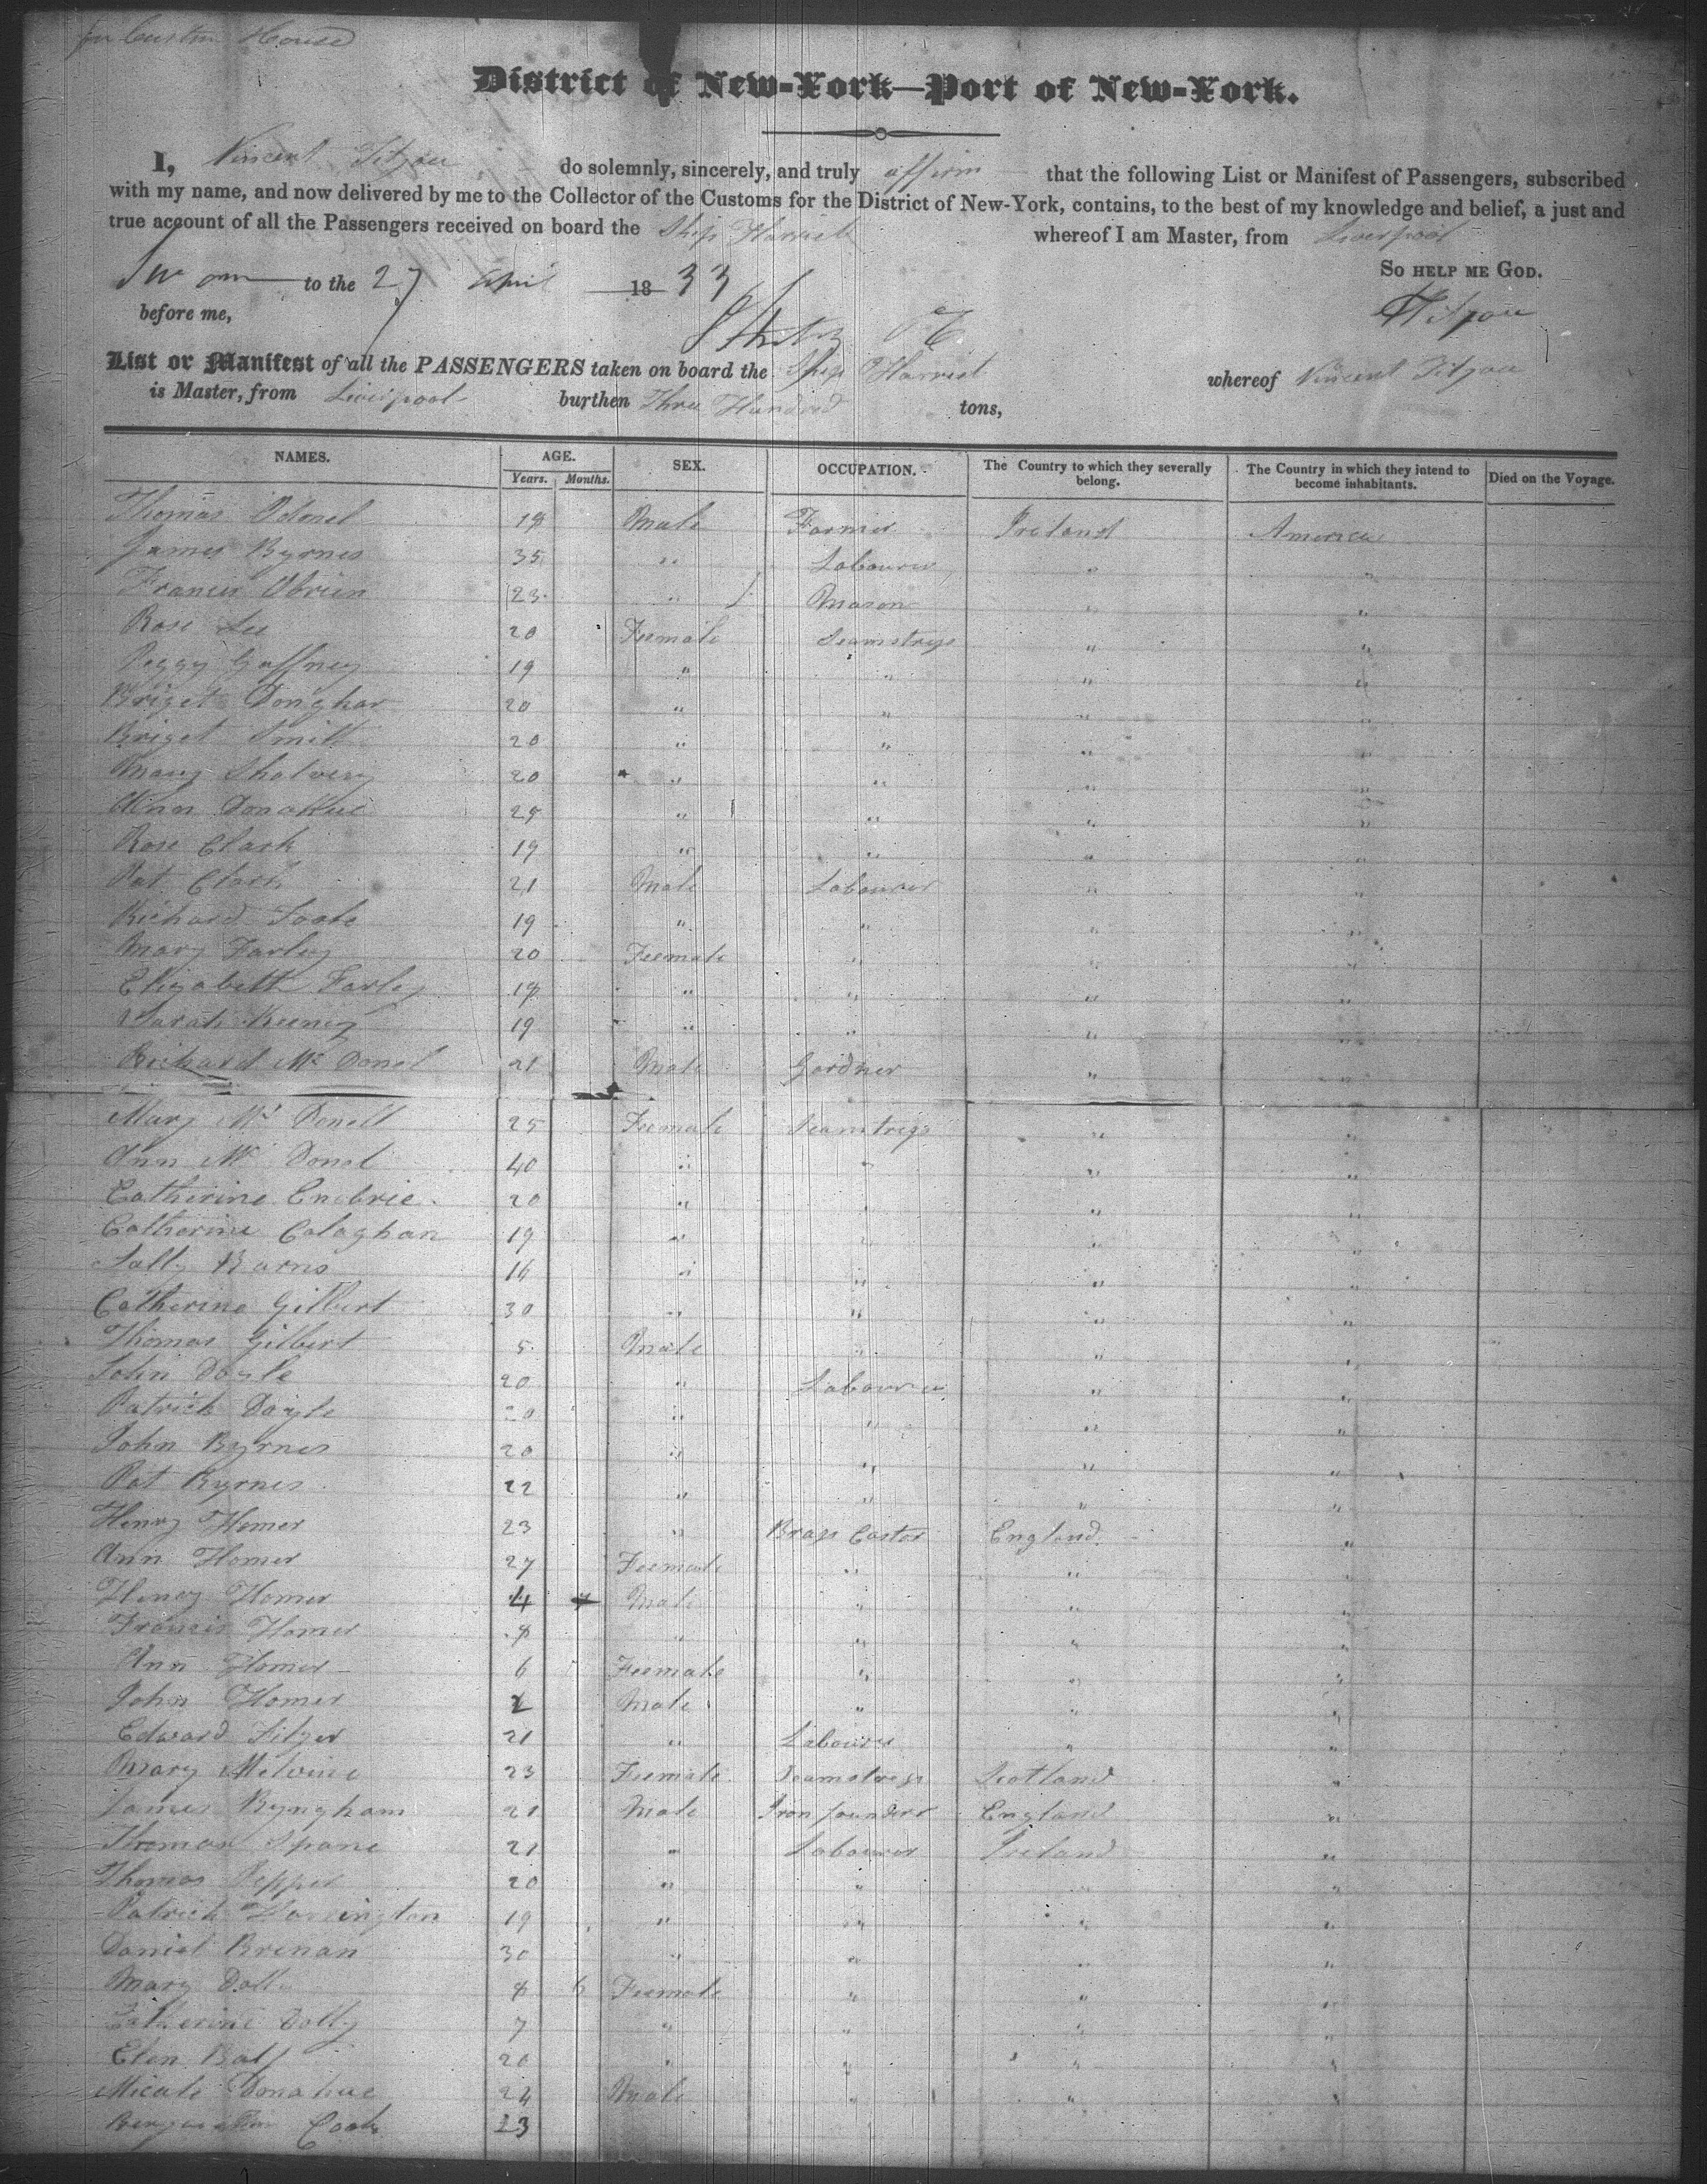 Custom House
District of New-York—Port of New-York.
I, Vincent do solemnly, sincerely, and truly affirm that the following List or Manifest of Passengers, subscribed
with my name, and now delivered by me to the Collector of the Customs for the District of New-York, contains, to the best of my knowledge and belief, a just and
true account of all the Passengers received on board the Ship Harriet whereof I am Master, from Liverpool
So help me God.
Sworn to the 27 April 1833
before me,
List or Manifest of all the PASSENGERS taken on board the Ship Harriet whereof Vincent
is Master, from Liverpool burthen Three Hundred tons,
NAMES. AGE. SEX. OCCUPATION. The Country to which they severally belong. The Country in which they intend to become inhabitants. Died on the Voyage.
Years. Months.
Thomas Odonel Male Farmer Ireland America
James Byrnes 35 " Labourer " "
Francis Obrien 23 " Mason " "
Rose Lee 20 Feemale Seamstrgs " "
Peggy Gaffney 19 " " " "
Briget Donghar 20 " " " "
Briget Smith 20 " " " "
Mary 20 " " " "
Ann Donahue " " " "
Rose Clark 19 " " " "
Pat Clark 21 Male Labourer " "
Richard 19 " " " "
Mary Farley 20 Feemale " " "
Elizabeth Farley " " " "
Sarah Keeney 19 " " " "
Richard Mc Donel 21 Male Gardner " "
Mary Mc Donell 25 Feemale " "
Ann Mc Donel 40 " " " "
Catherine 20 " " " "
Catherine Calaghan 19 " " " "
Sally Barns 16 " " " "
Catherine Gilbert 30 " " " "
Thomas Gilbert 5 Male " " "
John Doyle 20 " Labourer " "
Patrick Doyle 20 " " " "
John Byrnes 20 " " " "
Pat Byrnes 22 " " " "
Henry Homer 23 " Brass Castor England "
Ann Homer 27 Feemale " " "
Henry Homer 4 Male " " "
Francis Homer 8 " " " "
Ann Homer 6 Feemale " " "
John Homer 2 Male " " "
Edward 21 " Labourer " "
Mary Melvine 23 Feemale Seamstress Scotland "
James Byngham 21 Male Iron founder England "
Thomas 21 " Labourer Ireland "
Thomas Pepper 20 " " " "
Patrick Harrington 19 " " " "
Daniel Brenan 30 " " " "
Mary Dolly 8 6 Feemale " " "
Catherine Dolly 7 " " " "
Elen Balf 20 " " " "
Micale Donahue 24 Male " "
Cook 23